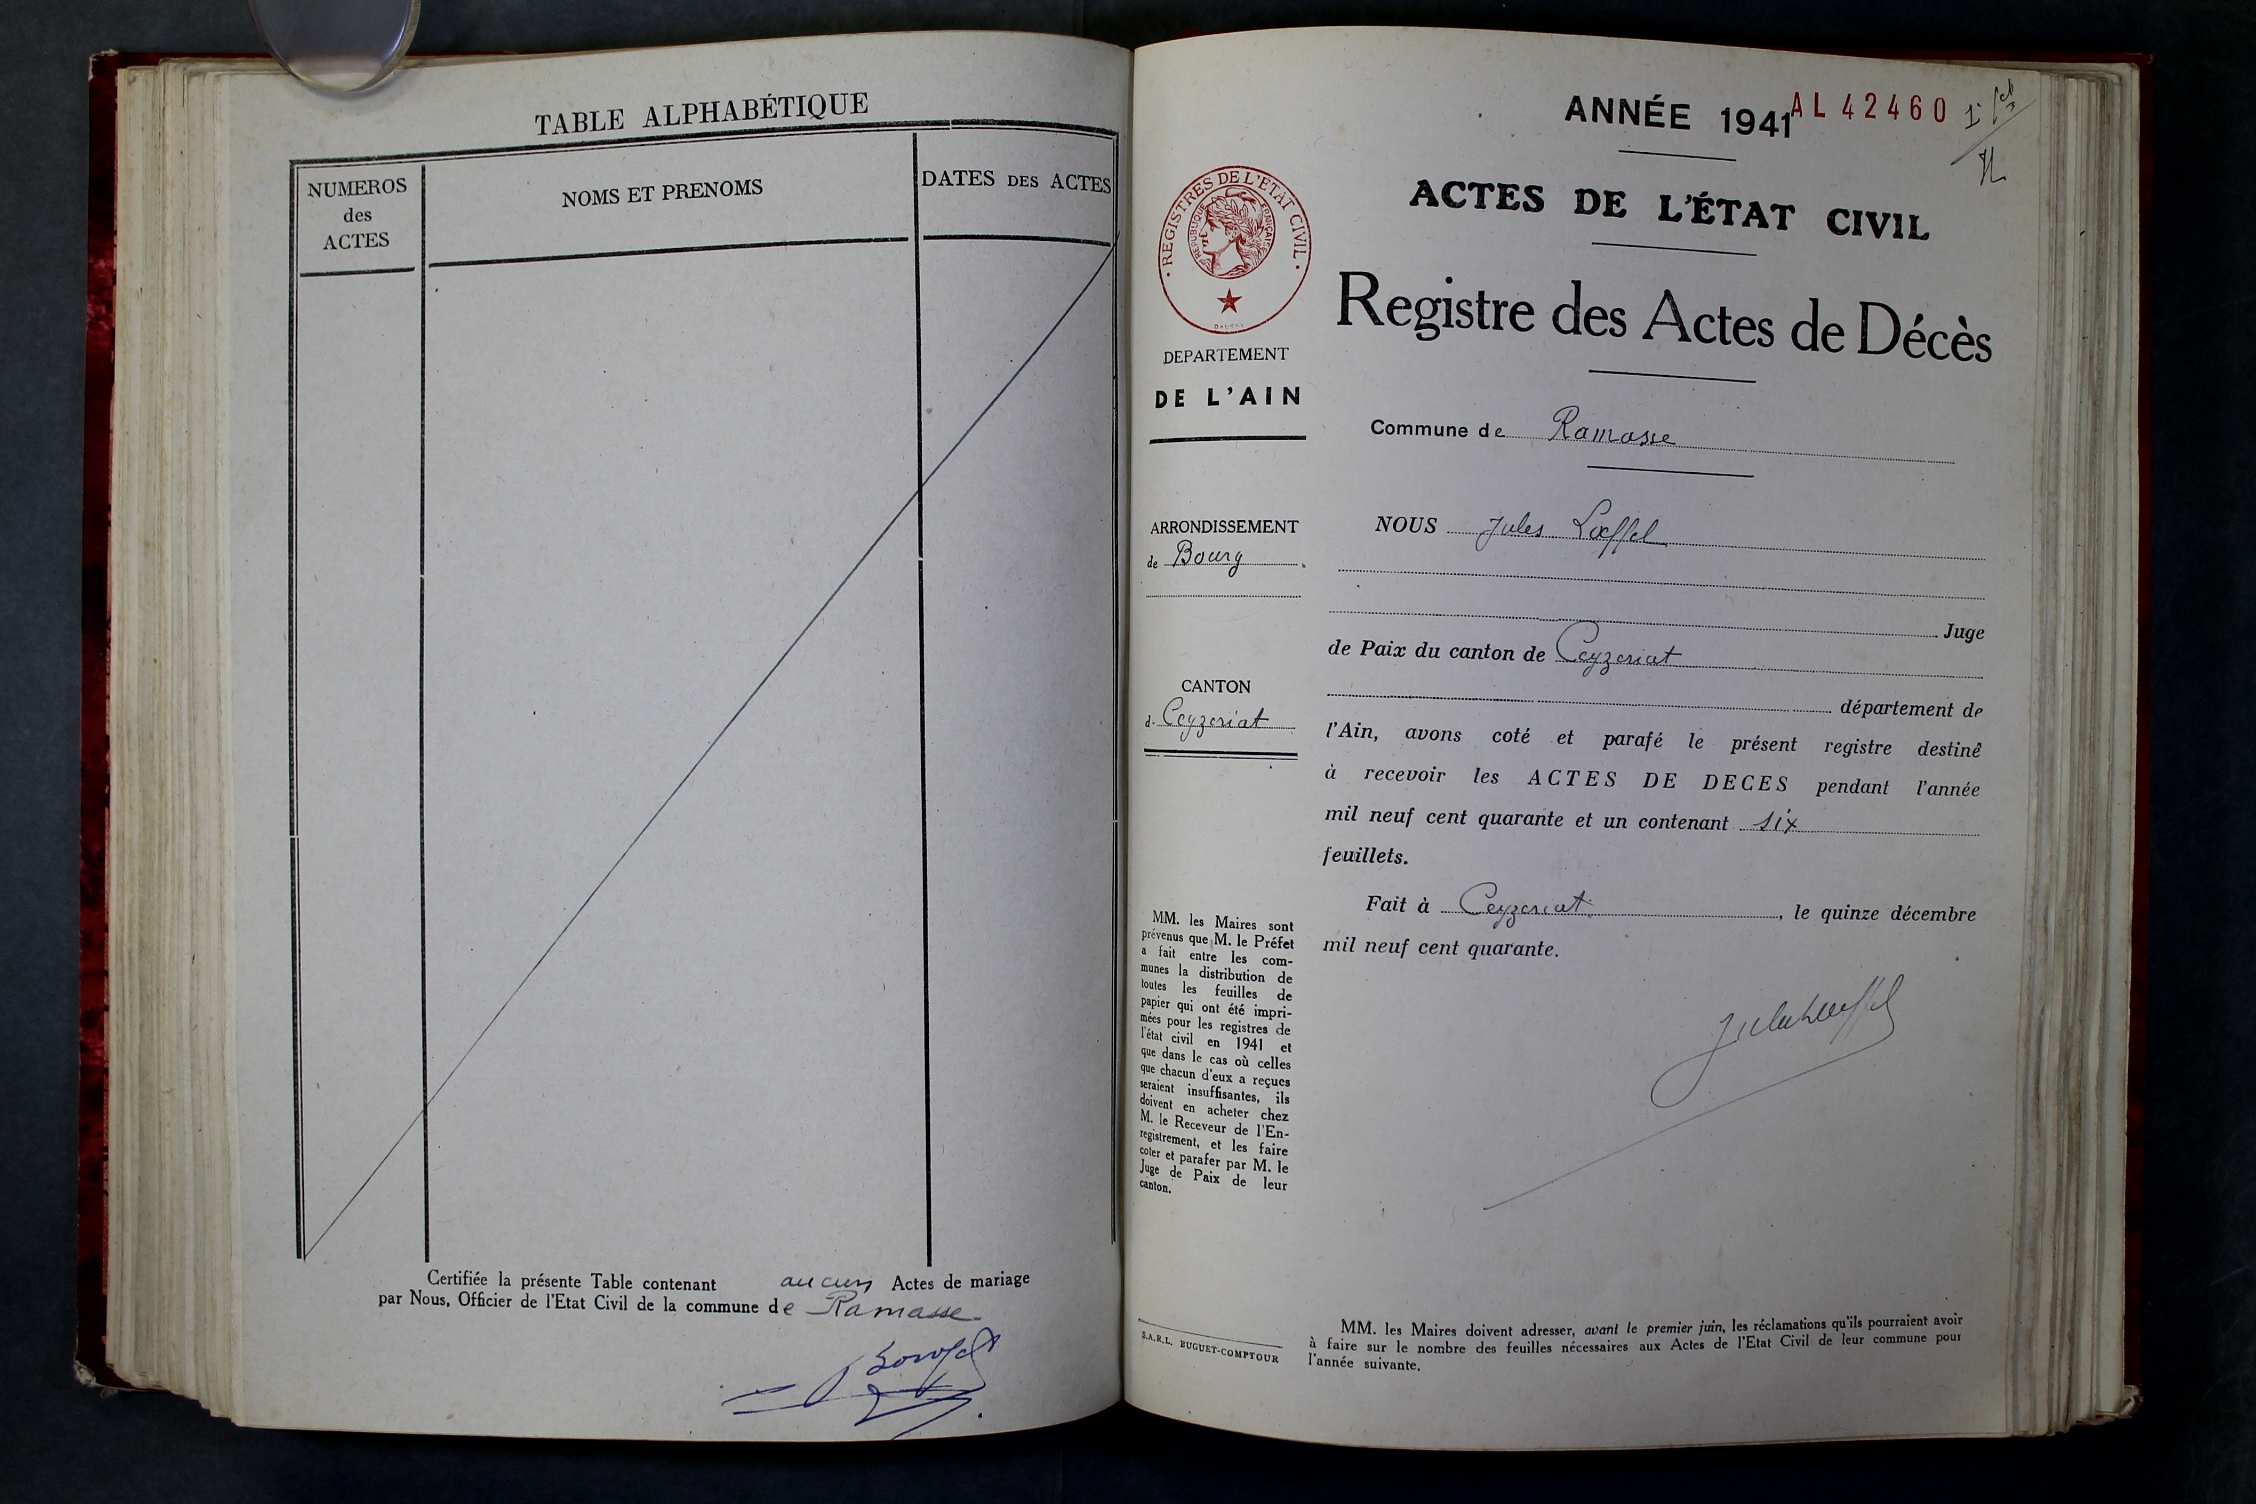 TABLE ALPHABÉTIQUE
NUMEROS
des
ACTES
NOMS ET PRENOMS
DATES DES ACTES
Certifiée la présente Table contenant aucun Actes de mariage
par Nous, Officier de l'Etat Civil de la commune de Ramasse
ANNÉE 1941
AL 42460
ACTES DE L'ÉTAT CIVIL
Registre des Actes de Décès
REGISTRES DE L'ÉTAT CIVIL
RÉPUBLIQUE FRANÇAISE
DEPARTEMENT
DE L'AIN
Commune de Ramasse
ARRONDISSEMENT
de Bourg
CANTON
d. Ceyzeriat
NOUS Jules Lœffel
Juge
de Paix du canton de Ceyzeriat
département de
l'Ain, avons coté et parafé le présent registre destiné
à recevoir les ACTES DE DECES pendant l'année
mil neuf cent quarante et un contenant six
feuillets.
Fait à Ceyzeriat, le quinze décembre
mil neuf cent quarante.
MM. les Maires sont
prévenus que M. le Préfet
a fait entre les com-
munes la distribution de
toutes les feuilles de
papier qui ont été impri-
mées pour les registres de
l'état civil en 1941 et
que dans le cas où celles
que chacun d'eux a reçues
seraient insuffisantes, ils
doivent en acheter chez
M. le Receveur de l'En-
registrement, et les faire
coter et parafer par M. le
Juge de Paix de leur
canton.
S.A.R.L. BUGUET-COMPTOUR
MM. les Maires doivent adresser, avant le premier juin, les réclamations qu'ils pourraient avoir
à faire sur le nombre des feuilles nécessaires aux Actes de l'Etat Civil de leur commune pour
l'année suivante.